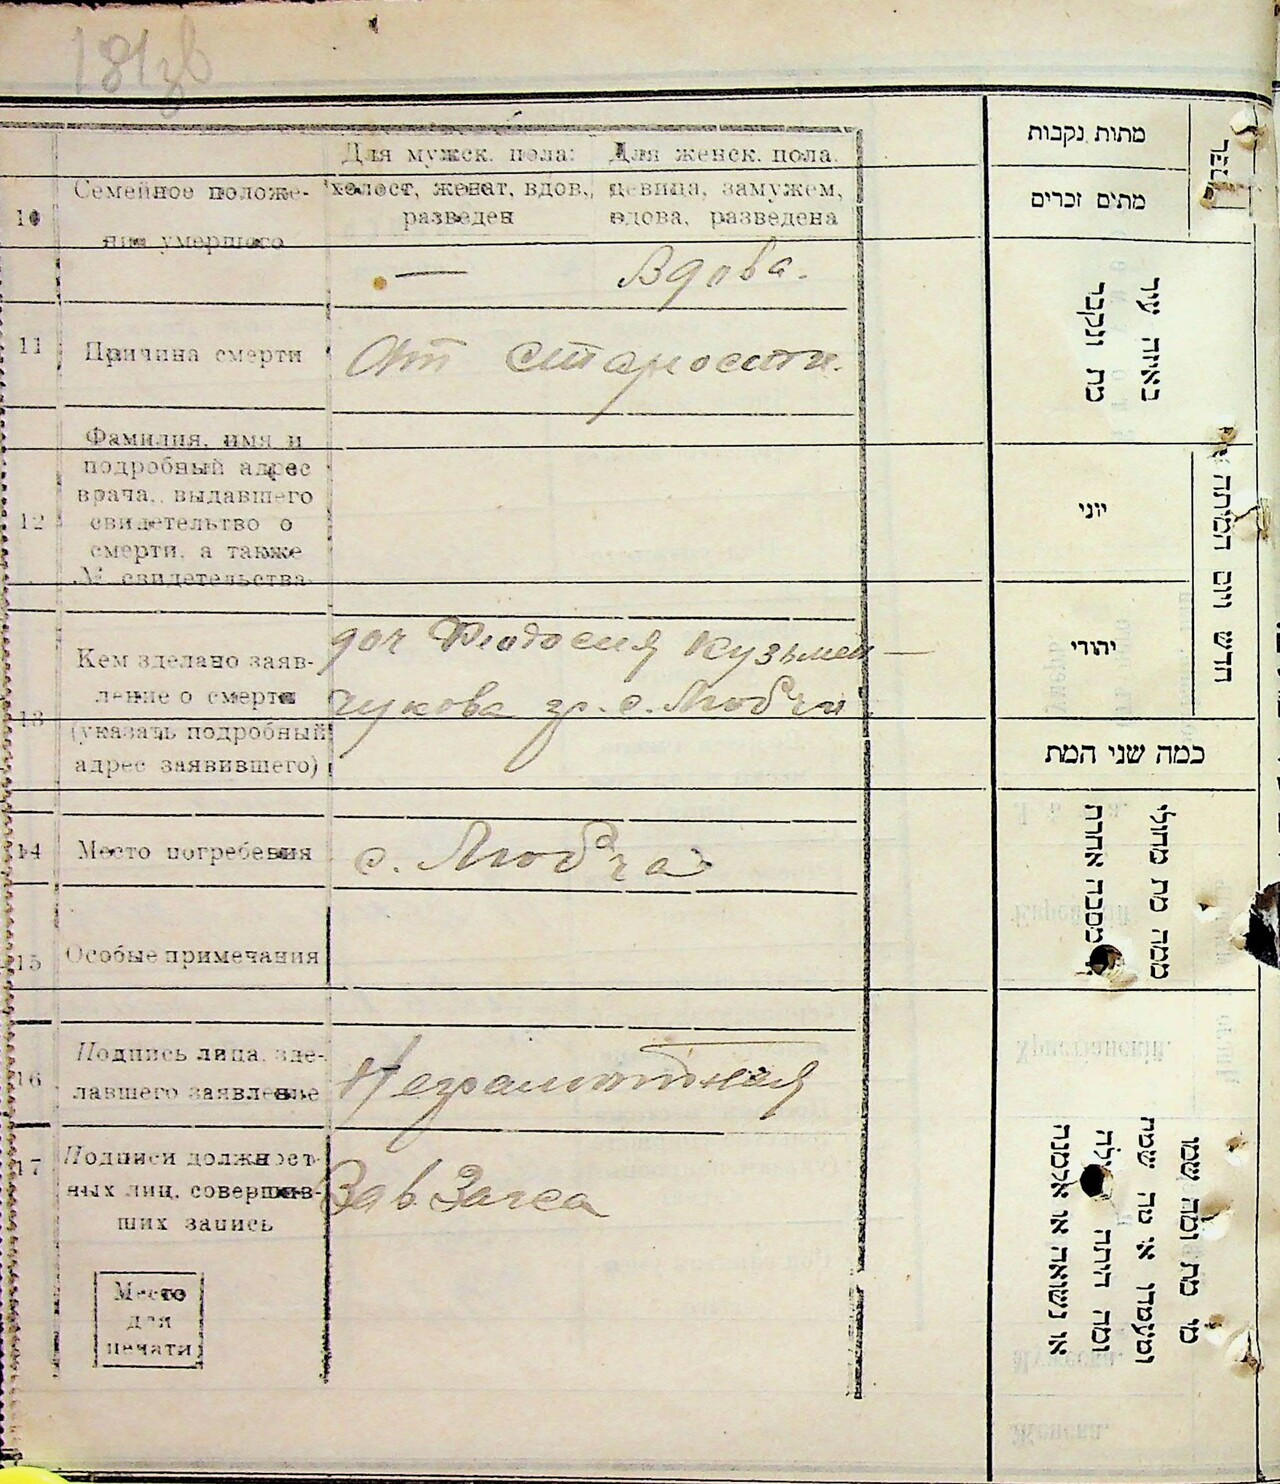 181зв
Для мужск. пола:
холост, женат, вдов.,
разведен
Для женск. пола.
девица, замужем,
вдова, разведена
10
Семейное положе-
ния умершого
—
Вдова.
11
Причина смерти
От старости.
12
Фамилия, имя и
подробный адрес
врача, выдавшего
свидетельтво о
смерти, а также
№ свидетельства
13
Кем зделано заяв-
ление о смерти
(указать подробный
адрес заявившего)
доч Феодосия Кузьмен-
чукова гр. с. Любчи
14
Место погребения
с. Любча
15
Особые примечания
16
Подпись лица, зде-
лавшего заявление
Неграмотная
17
Подписи должност-
ных лиц, совершив-
ших запись
Зав. Загса
Место
для
печати
מתות נקבות
מתים זכרים
באיזה עיר
מת ונקבר
חדש ויום המיתה
יוני
יהודי
כמה שני המת
ממה מת מחולי
מסבה אחרת
מי מת ומה שמו
ומעמדו או מה שמה
ומה היתה
או נשואה או אלמנה